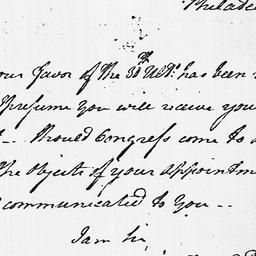 Philadel
our favor of the 30th Ulto. has been
presume you will receive you
Should Congress come to a
The Objects of your appointm
communicated to You --
I am Sir,